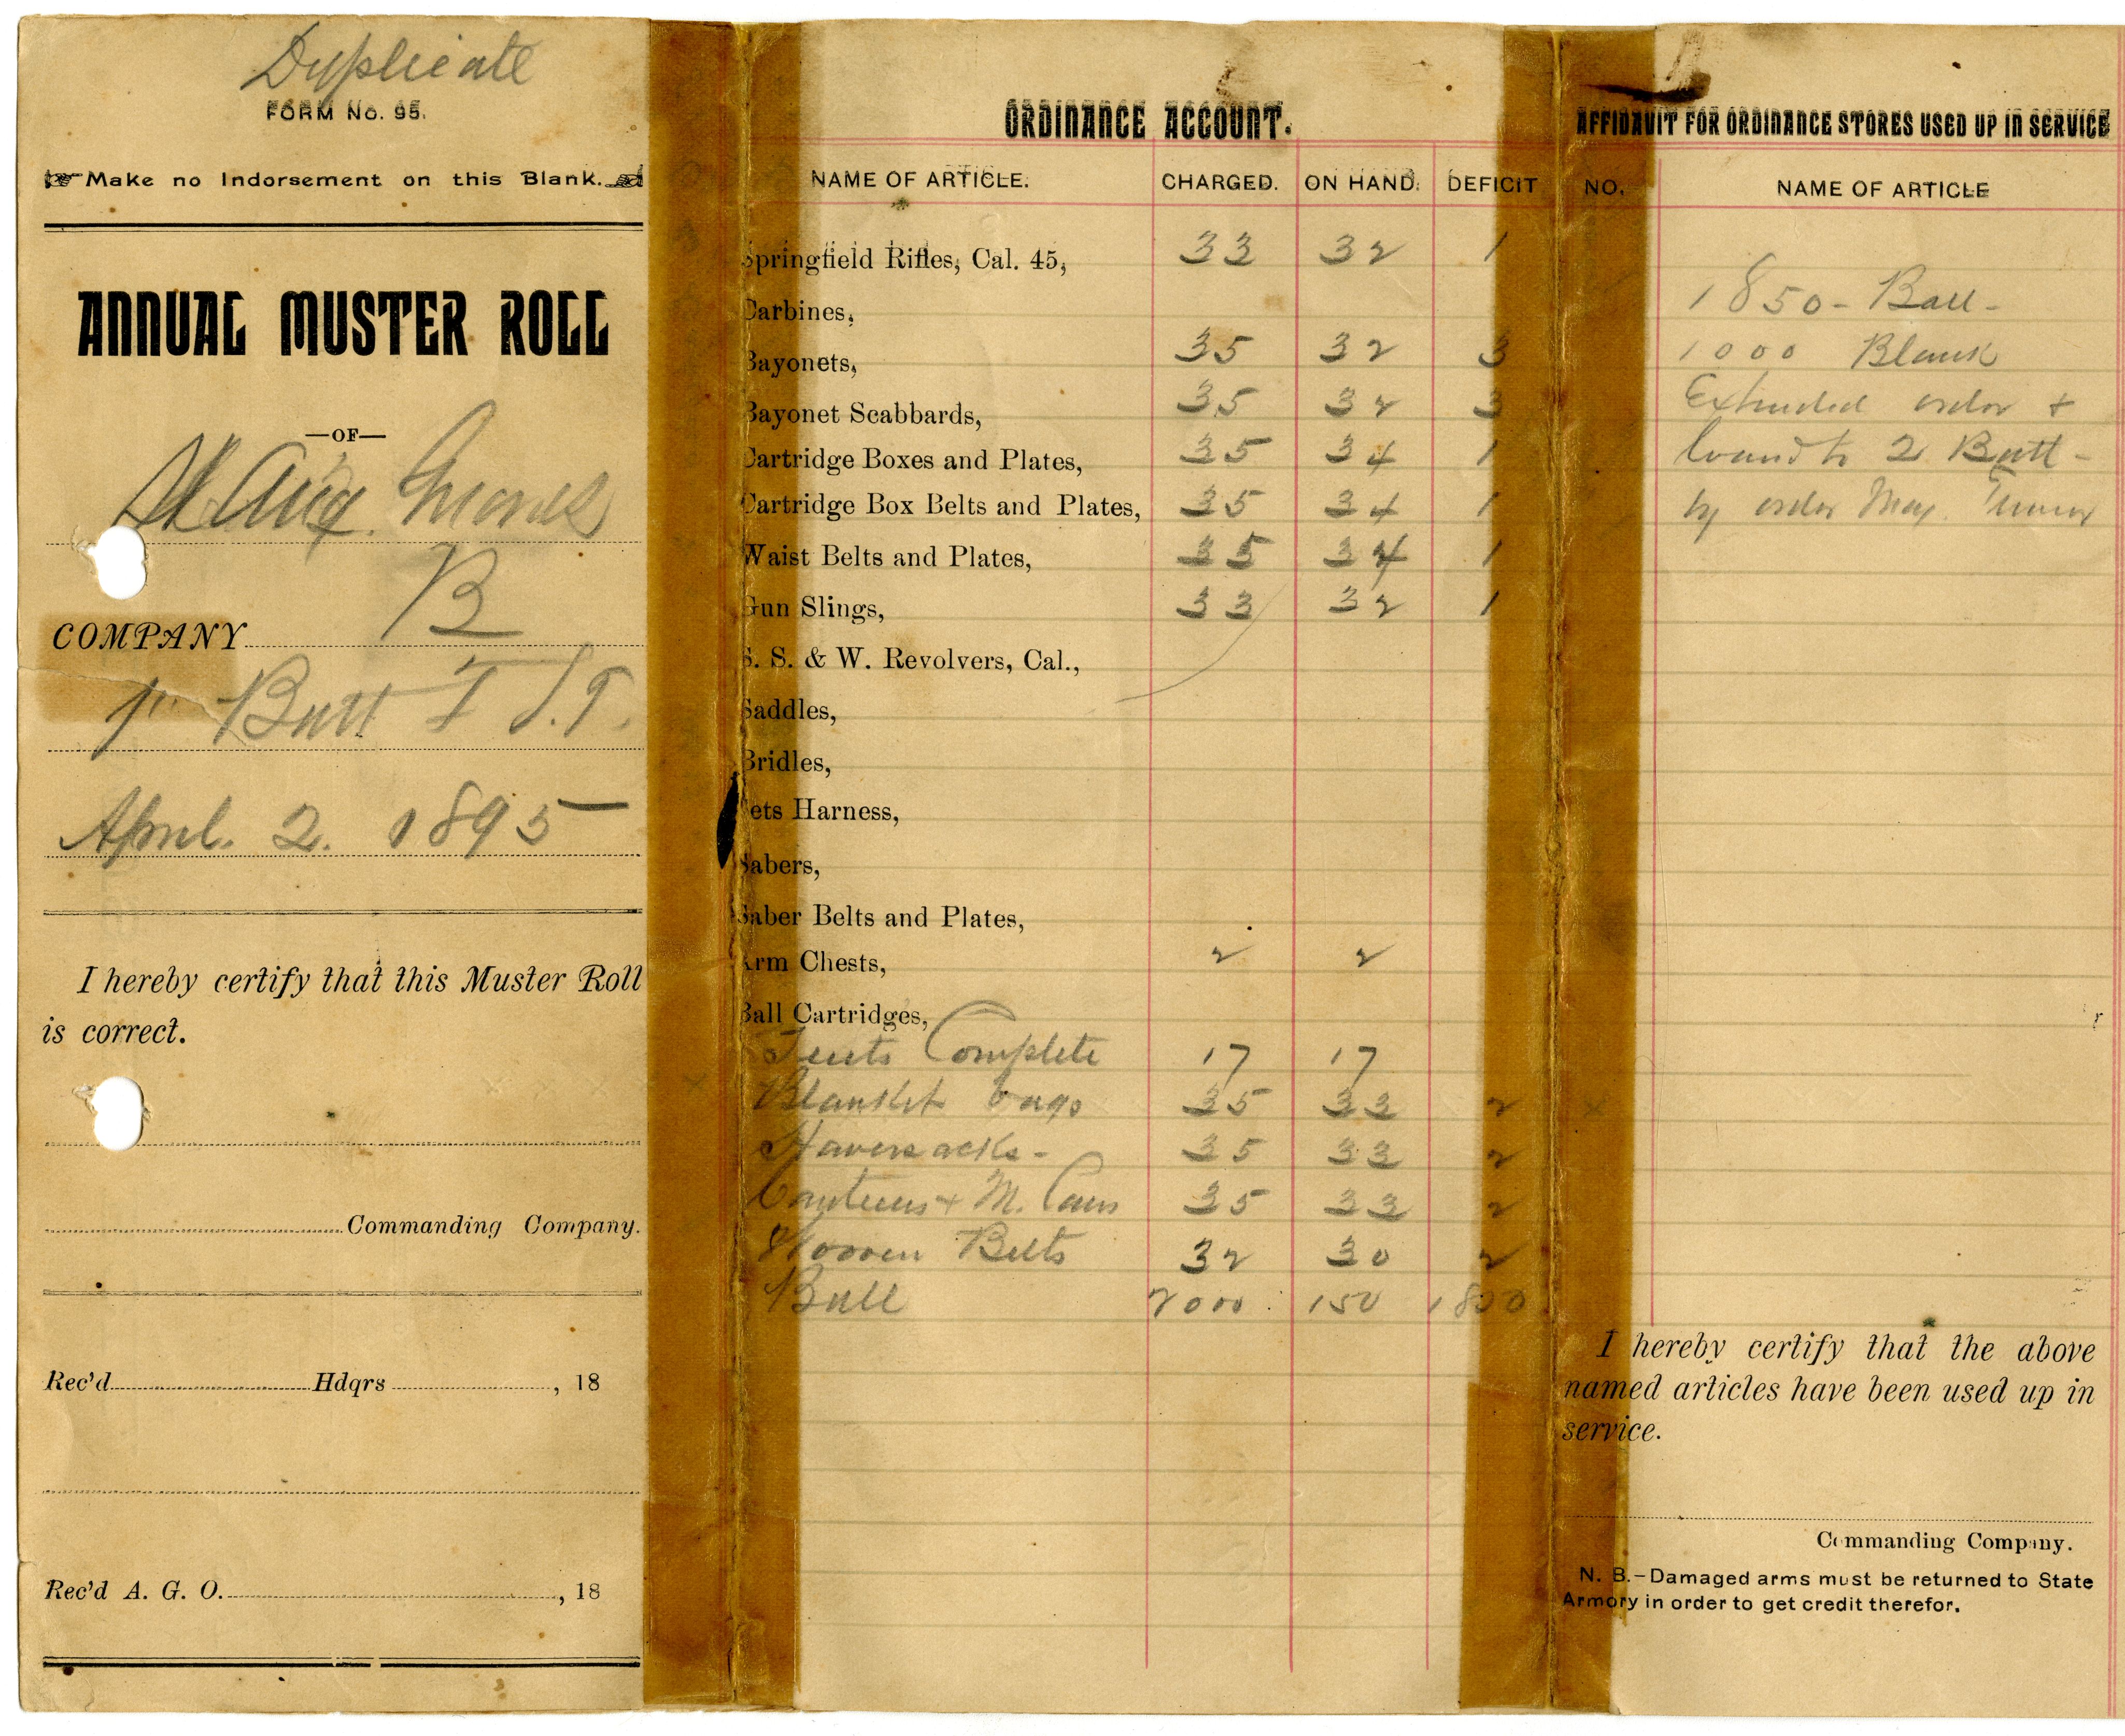 Duplicate
FORM No. 95.
Make no Indorsement on this Blank.
ANNUAL MUSTER ROLL
—OF—
St Aug. Guards
COMPANY B
1st Batt F S.T.
April. 2. 1895
I hereby certify that this Muster Roll
is correct.
Commanding Company.
Rec'd Hdqrs , 18
Rec'd A. G. O. , 18
ORDINANCE ACCOUNT.
NAME OF ARTICLE. CHARGED. ON HAND. DEFICIT
Springfield Rifles, Cal. 45, 33 32 1
Carbines,
Bayonets, 35 32 3
Bayonet Scabbards, 35 32 3
Cartridge Boxes and Plates, 35 34 1
Cartridge Box Belts and Plates, 35 34 1
Waist Belts and Plates, 35 34 1
Gun Slings, 33 32 1
S. S. & W. Revolvers, Cal.,
Saddles,
Bridles,
Sets Harness,
Sabers,
Saber Belts and Plates,
Arm Chests, 2 2
Ball Cartridges,
Tents Complete 17 17
Blanket bags 35 33 2
Haversacks - 35 33 2
Canteens + M. Cans 35 33 2
Woven Belts 32 30 2
Ball 2000 150 1850
AFFIDAVIT FOR ORDINANCE STORES USED UP IN SERVICE
NO. NAME OF ARTICLE
1850 - Ball -
1000 Blank
Extended order +
loaned to 2 Batt -
by order Maj.
I hereby certify that the above
named articles have been used up in
service.
Commanding Company.
N. B.—Damaged arms must be returned to State
Armory in order to get credit therefor.